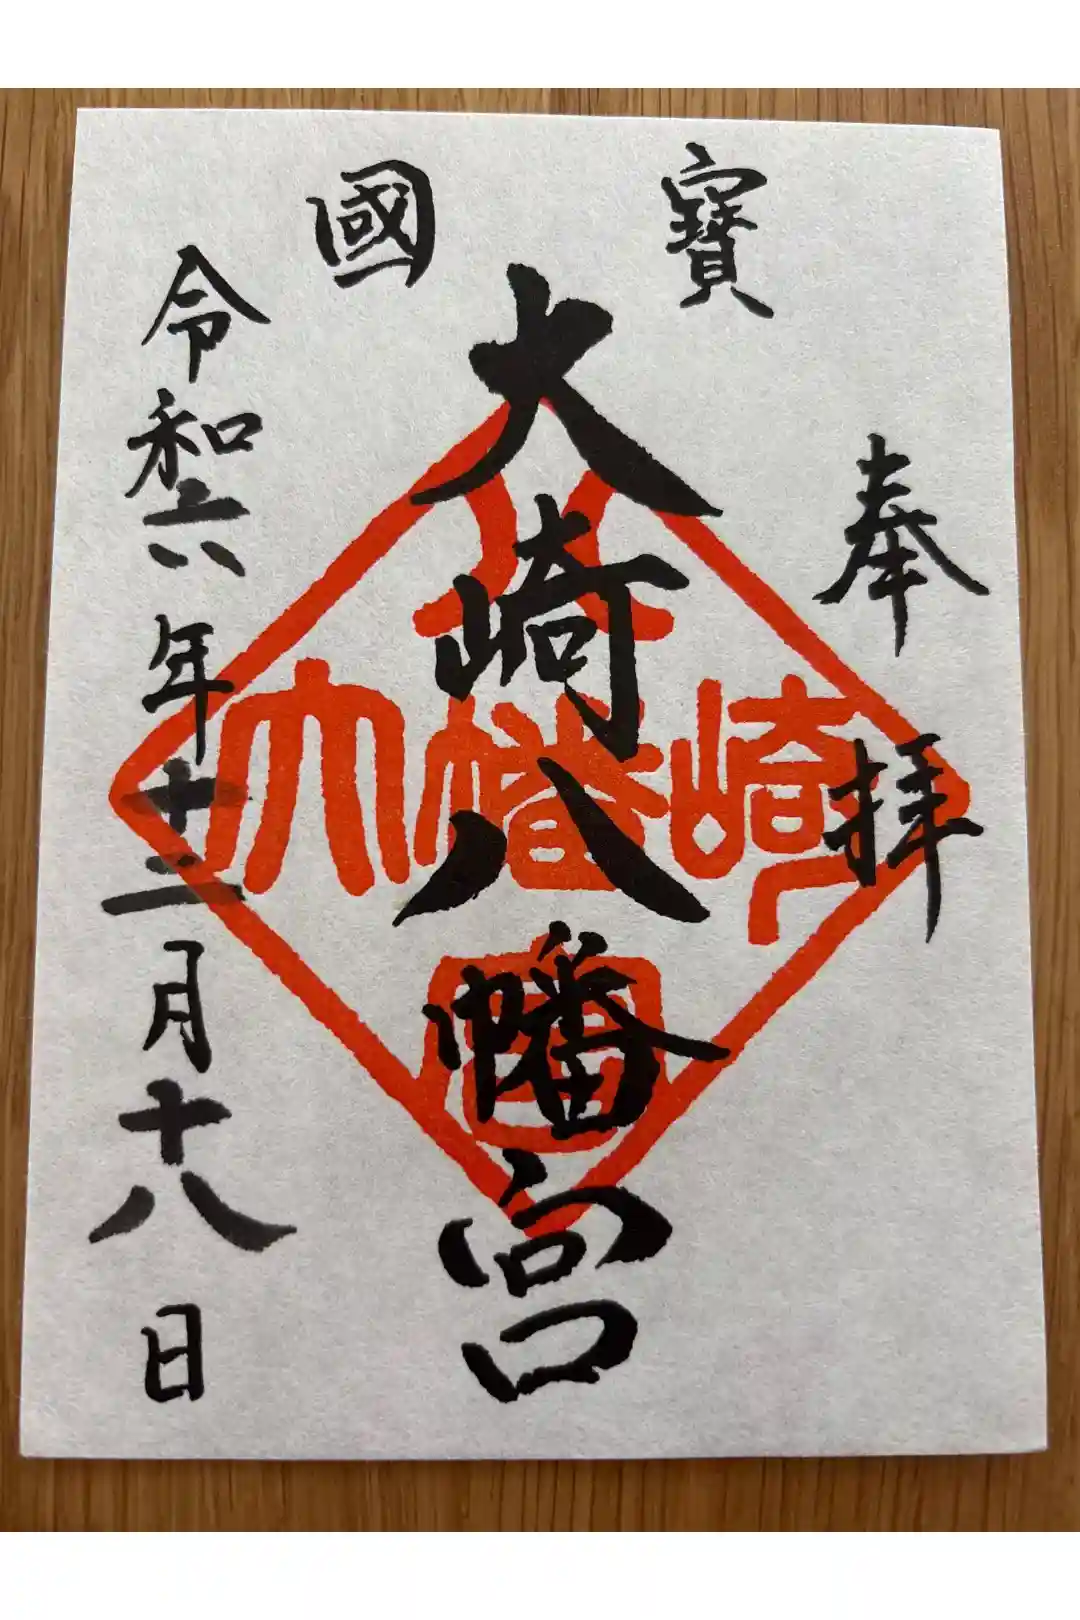 奉拝
國寶
大崎八幡宮
令和六年十二月十八日
八
大幡崎
宮